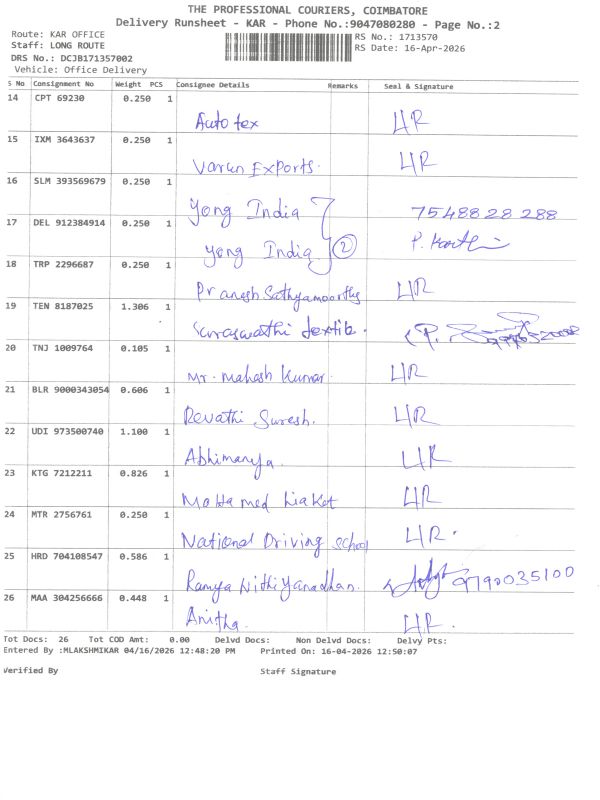 THE PROFESSIONAL COURIERS, COIMBATORE
Delivery Runsheet - KAR - Phone No.:9047080280 - Page No.:2
Route: KAR OFFICE
RS No.: 1713570
Staff: LONG ROUTE
RS Date: 16-Apr-2026
DRS No.: DCJB171357002
Vehicle: Office Delivery
S No Consignment No Weight PCS Consignee Details Remarks Seal & Signature
14 CPT 69230 0.250 1
Auto tex LIR
15 IXM 3643637 0.250 1
Varun Exports. LIR
16 SLM 393569679 0.250 1
Yong India 7548828288
17 DEL 912384914 0.250 1
Yong India 2
18 TRP 2296687 0.250 1
Pranesh Sathyamoorthy LIR
19 TEN 8187025 1.306 1
textile.
20 TNJ 1009764 0.105 1
Mr. Mahesh Kumar LIR
21 BLR 9000343054 0.606 1
Revathi Suresh. LIR
22 UDI 973500740 1.100 1
Abhimanya. LIR
23 KTG 7212211 0.826 1
Mohamed Liaket LIR
24 MTR 2756761 0.250 1
National Driving school LIR.
25 HRD 704108547 0.586 1
Ramya Nithiyanadhan. 9790035100
26 MAA 304256666 0.448 1
Anitha. LIR.
Tot Docs: 26 Tot COD Amt: 0.00 Delvd Docs: Non Delvd Docs: Delvy Pts:
Entered By :MLAKSHMIKAR 04/16/2026 12:48:20 PM Printed On: 16-04-2026 12:50:07
Verified By Staff Signature